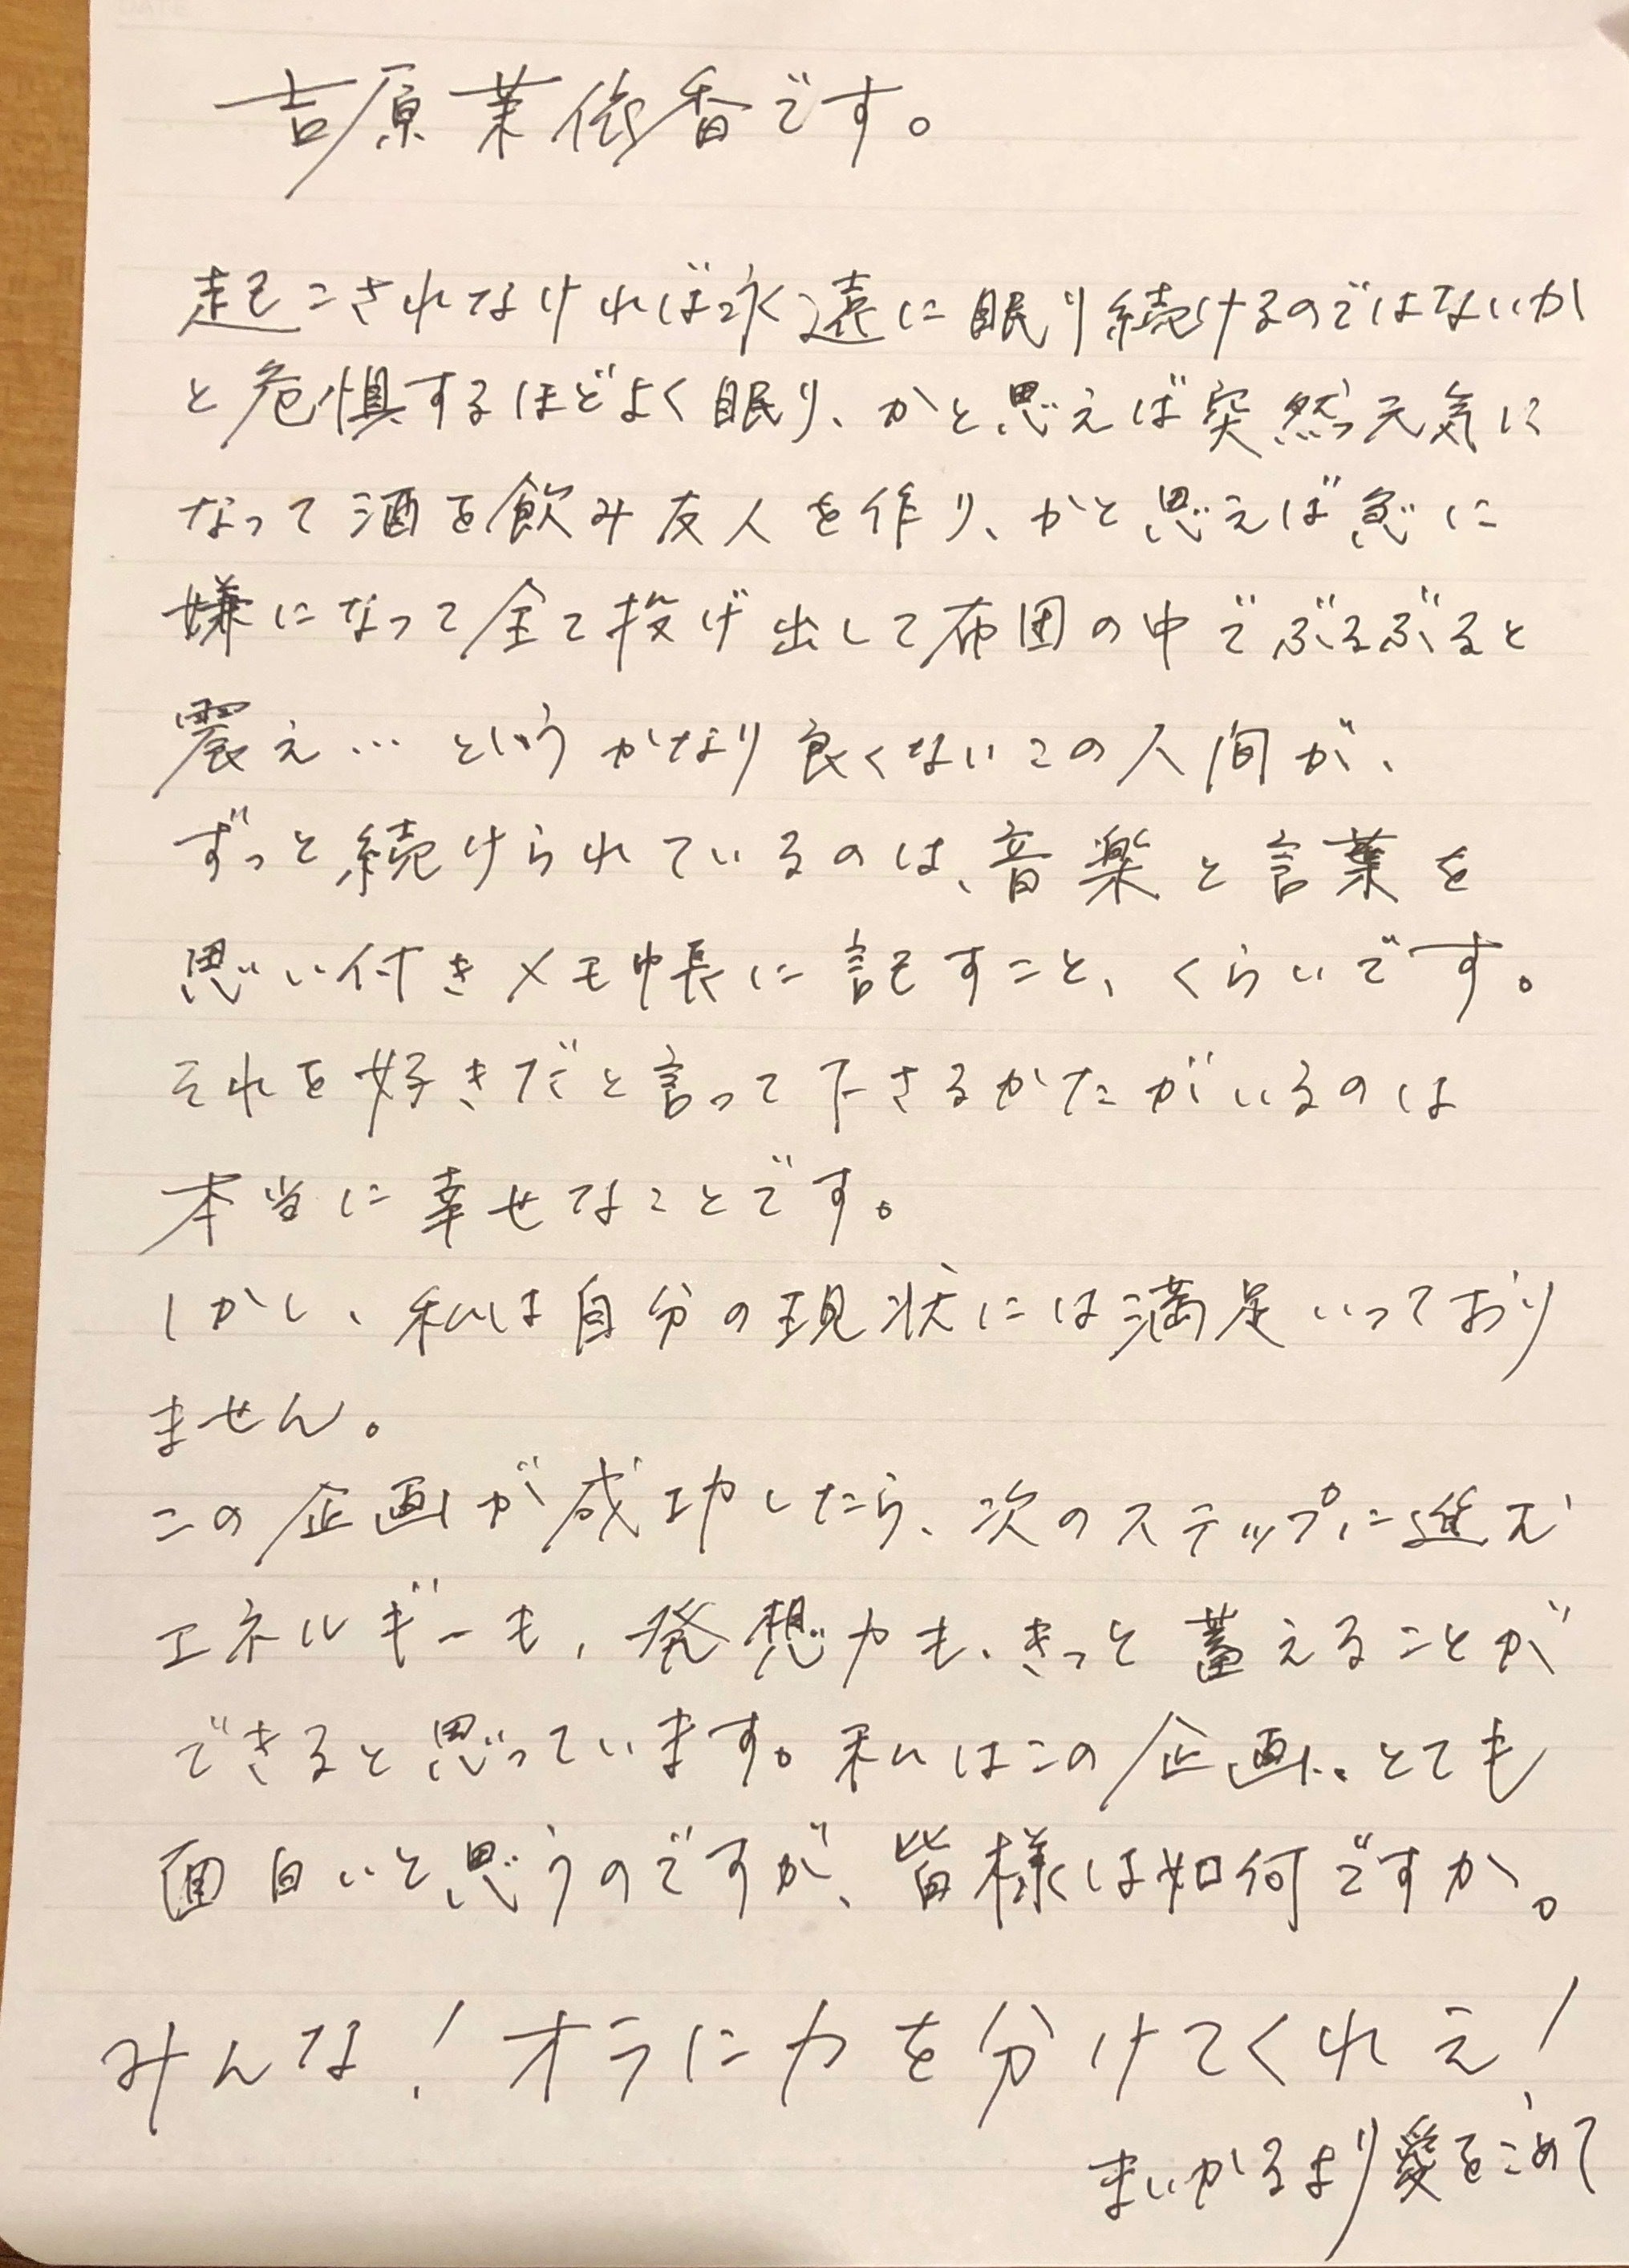 吉原茉依香です。
起こされなければ永遠に眠り続けるのではないか
と危惧するほどよく眠り、かと思えば突然元気に
なって酒を飲み友人を作り、かと思えば急に
嫌になって全て投げ出して布団の中でぶるぶると
震え…というかなり良くないこの人間が、
ずっと続けられているのは、音楽と言葉を
思い付きメモ帳に記すこと、くらいです。
それを好きだと言って下さるかたがいるのは
本当に幸せなことです。
しかし、私は自分の現状には満足いっており
ません。
この企画が成功したら、次のステップに進む
エネルギーも、発想力も、きっと蓄えることが
できると思っています。私はこの企画、とても
面白いと思うのですが、皆様は如何ですか。
みんな!オラに力を分けてくれえ!
まいかるより愛をこめて